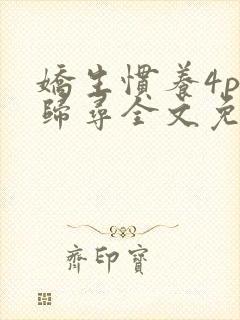 嬌生慣養4p
歸尋全文免
齊印寶